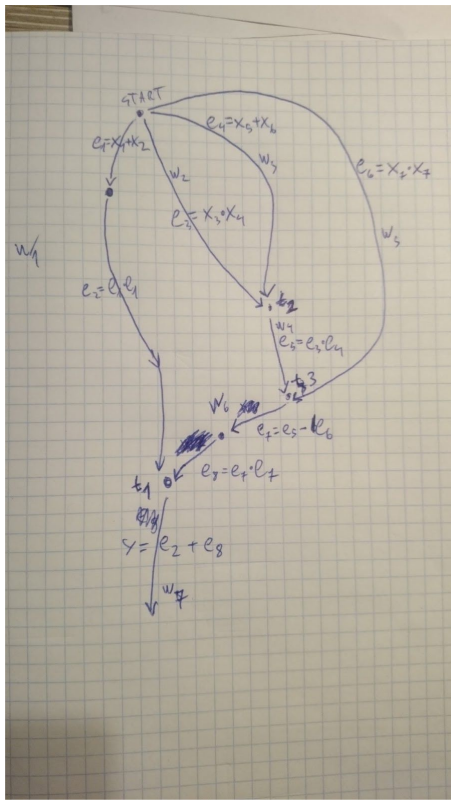 START
e1=x1+x2
e4=x5+x6
w2
w3
e6=x7·x7
e3=x3·x4
w1
w5
e2=e1·e1
t2
w4
e5=e3·e4
t3
w6
e7=e5-e6
e8=e7·e7
t1
y=e2+e8
w7